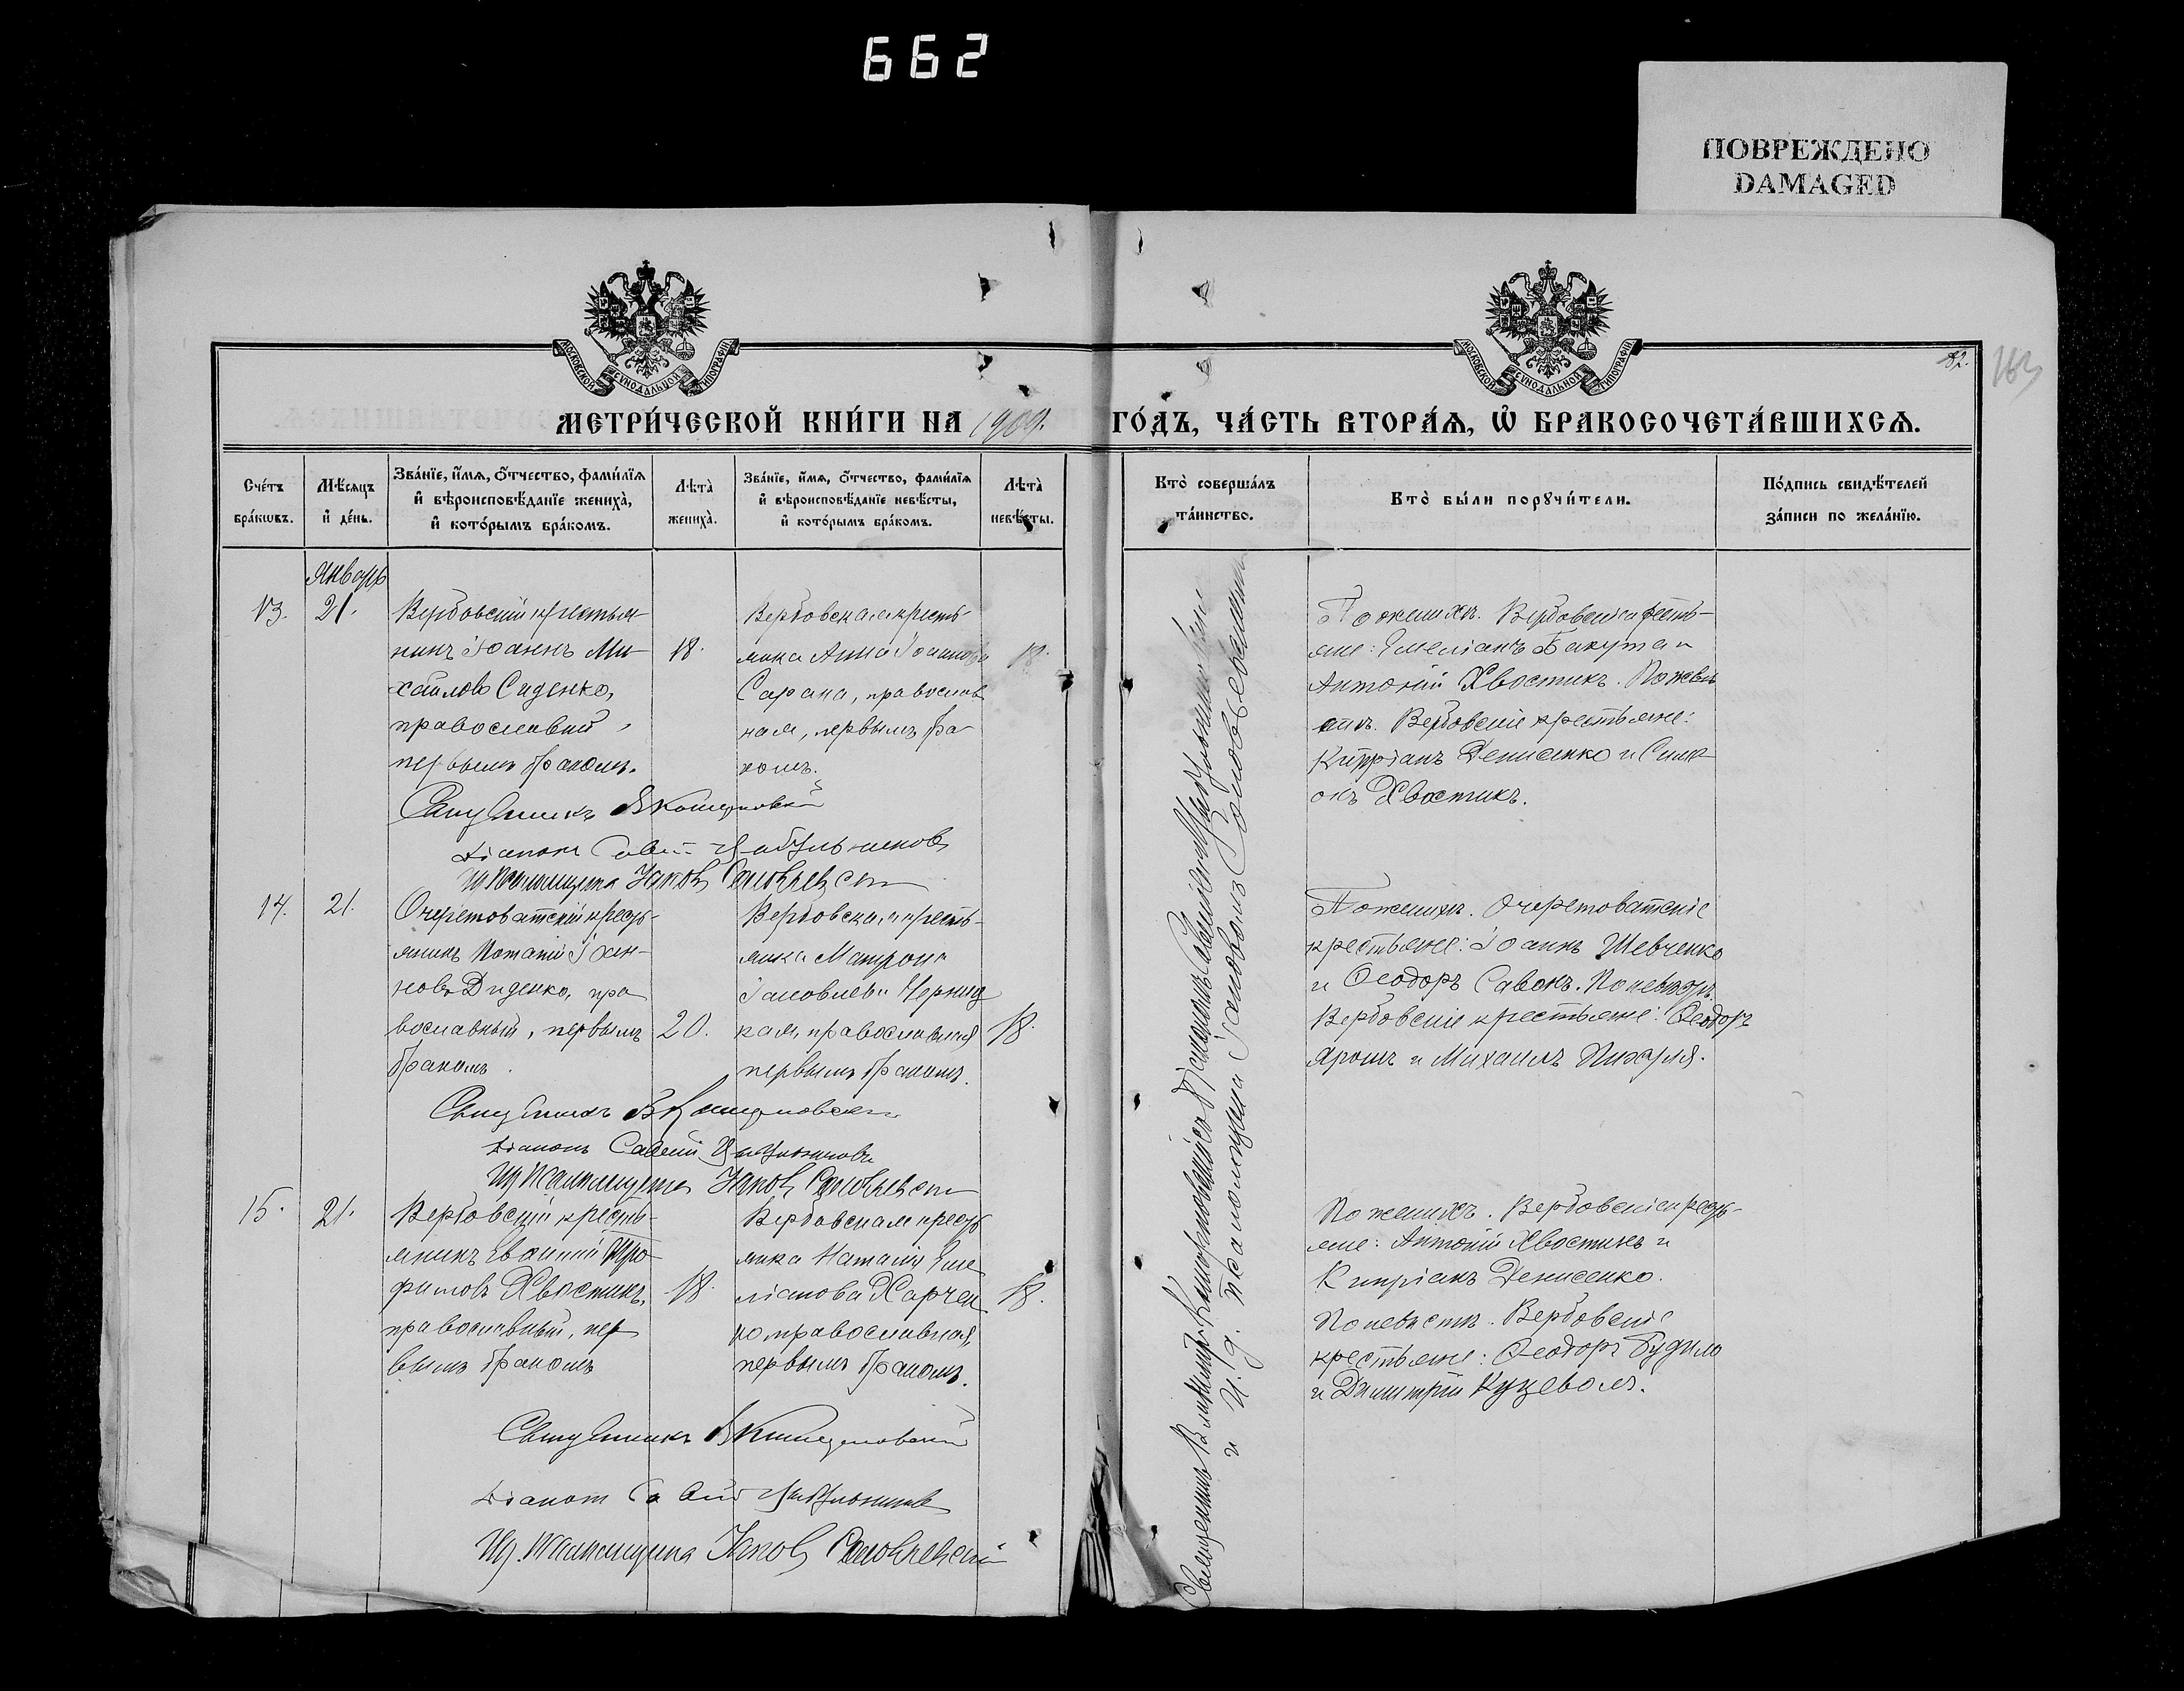 662
ПОВРЕЖДЕНО
DAMAGED
МОСКОВСКОЙ СѴНОДАЛЬНОЙ ТИПОГРАФІИ
МОСКОВСКОЙ СѴНОДАЛЬНОЙ ТИПОГРАФІИ
82.
163
МЕТРИ́ЧЕСКОЙ КНИ́ГИ НА 1909. ГО́ДЪ, ЧА́СТЬ ВТОРА́Я, Ѡ҆ БРАКОСОЧЕТА́ВШИХСЯ.
Сче́тъ
бра́кѡвъ.
Мѣ́сяцъ
и҆ де́нь.
Зва́нїе, и҆́мя, ѻ҆́тчество, фами́лїя
и҆ вѣроисповѣ́данїе жениха̀,
и҆ кото́рымъ бра́комъ.
Лѣта̀
жениха̀.
Зва́нїе, и҆́мя, ѻ҆́тчество, фами́лїя
и҆ вѣроисповѣ́данїе невѣ́сты,
и҆ кото́рымъ бра́комъ.
Лѣта̀
невѣ́сты.
Кто̀ соверша́лъ
та́инство.
Кто̀ бы́ли порꙋчи́тели.
По́дпись свидѣ́телей
за́писи по жела́нїю.
Январь
13.
21.
Вербовскій крестья-
нинъ Іоаннъ Ми-
хаиловъ Сиденко,
православный,
первымъ бракомъ.
18.
Вербовская кресть-
янка Анна Іоаннова
Сарана, православ
ная, первымъ бра-
комъ.
18.
По женихѣ. Вербовскіе кресть-
яне: Емеліанъ Бакута и
Антоній Хвостикъ. По невѣ
стѣ. Вербовскіе крестьяне:
Кипріанъ Денисенко и Симе
онъ Хвостикъ.
Священникъ
Діаконъ
Псаломщика Яковъ
14.
21.
Очеретоватскій кресть-
янинъ Потапій Іоан-
новъ Диденко, пра
вославный, первымъ
бракомъ.
20.
Вербовская кресть-
янка Матрона
Іаковлева
кая, православная
первымъ бракомъ.
18.
По женихѣ. Очеретоватскіе
крестьяне: Іоаннъ Шевченко
и Ѳеодоръ Савонъ. По невѣстѣ.
Вербовскіе крестьяне: Ѳеодоръ
Ярошъ и Михаилъ Пихуля.
Священникъ
Діаконъ Савва
Псаломщика Яковъ
15.
21.
Вербовскій кресть-
янинъ Евѳимій Тро-
фимовъ Хвостикъ,
православный, пер
вымъ бракомъ
18.
Вербовская кресть
янка Наталія Еме
ліанова Харчен
ко православная,
первымъ бракомъ.
18.
По женихѣ. Вербовскіе кресть-
яне: Антоній Хвостикъ и
Кипріанъ Денисенко.
По невѣстѣ. Вербовскіе
крестьяне: Ѳеодоръ Будило
и Димитрій Куцеволъ.
Священникъ
Діаконъ
Псаломщика Яковъ
Священникъ Владиміръ съ Діакономъ
и и. д. Псаломщика Іаковомъ